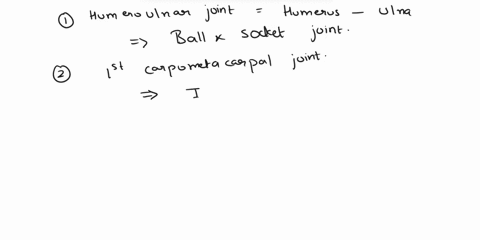 ① Humeroulnar joint = Humerus - ulna
=> Ball & socket joint.
② 1st carpometacarpal joint.
=> I